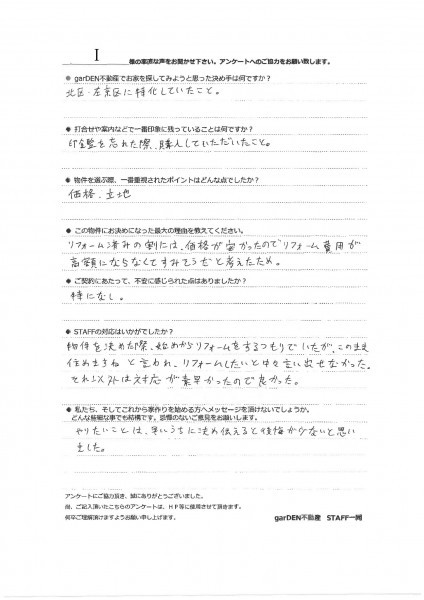 I 様の率直な声をお聞かせ下さい。アンケートへのご協力をお願い致します。
● garDEN不動産でお家を探してみようと思った決め手は何ですか？
北区・左京区に特化していたこと。
● 打合せや案内などで一番印象に残っていることは何ですか？
印鑑を忘れた際、購入していただいたこと。
● 物件を選ぶ際、一番重視されたポイントはどんな点でしたか？
価格、立地
● この物件にお決めになった最大の理由を教えてください。
リフォーム済みの割には、価格が安かったのでリフォーム費用が
高額にならなくてすみそうだと考えたため。
● ご契約にあたって、不安に感じられた点はありましたか？
特になし。
● STAFFの対応はいかがでしたか？
物件を決めた際、始めからリフォームをするつもりでいたが、この生
住めますね と言われ、リフォームしたいと中々言い出せなかった。
それ以外は対応が素早かったので良かった。
● 私たち、そしてこれから家作りを始める方へメッセージを頂けないでしょうか。
どんな些細な事でも結構です。忌憚のないご意見をお願いします。
やりたいことは、早いうちに決め伝えると後悔が少ないと思い
ました。
アンケートにご協力頂き、誠にありがとうございました。
尚、ご記入頂いたこちらのアンケートは、ＨＰ等に使用させて頂きます。
何卒ご理解頂けますようお願い申し上げます。
garDEN不動産 STAFF一同